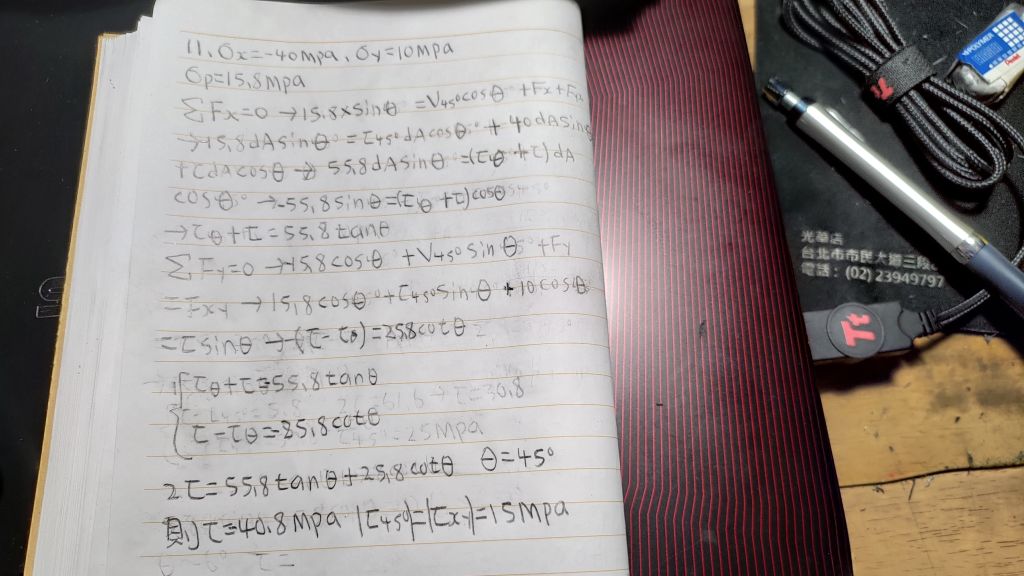 11. σx=-40mpa, σy=10mpa
σp=15.8mpa
ΣFx=0 →15.8×sinθ =V45°cosθ +Fx+Fxy
→15.8dAsinθ =τ45°dAcosθ + 40dAsinθ
+τdAcosθ → 55.8dAsinθ =(τθ+τ)dA
cosθ →55.8sinθ=(τθ+τ)cosθ
→τθ+τ=55.8tanθ
ΣFy=0 →15.8cosθ +V45°sinθ +Fy
=Fxy →15.8cosθ +τ45°sinθ +10cosθ
=τsinθ →(τ-τθ)=25.8cotθ
τθ+τ=55.8tanθ
τ-τθ=25.8cotθ
2τ=55.8tanθ+25.8cotθ θ=45°
則τ=40.8mpa |τ45°|=|τxy|=15mpa
τ=
光華店
台北市市民大道三段
電話：(02) 23949797
Tt
Pentel